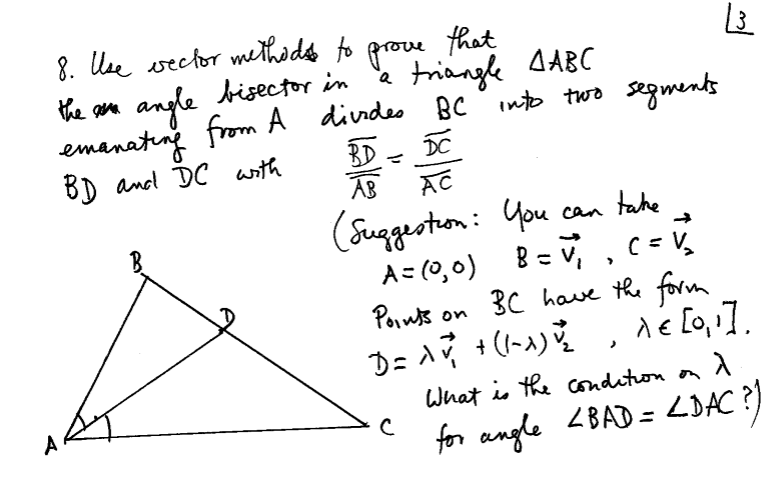 3
8. Use vector methods to prove that
the angle bisector in a triangle ΔABC
emanating from A divides BC into two segments
BD and DC with BD/AB = DC/AC
(Suggestion: You can take
A = (0,0) B = v⃗₁ , C = v⃗₂
Points on BC have the form
D = λv⃗₁ + (1-λ)v⃗₂ , λ ∈ [0,1].
What is the condition on λ
for angle ∠BAD = ∠DAC?)
B
D
A
C